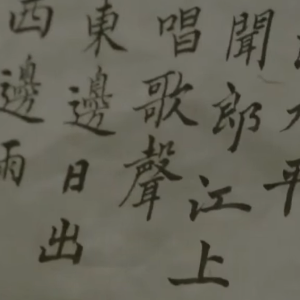 平
聞郎江上
唱歌聲
東邊日出
西邊雨